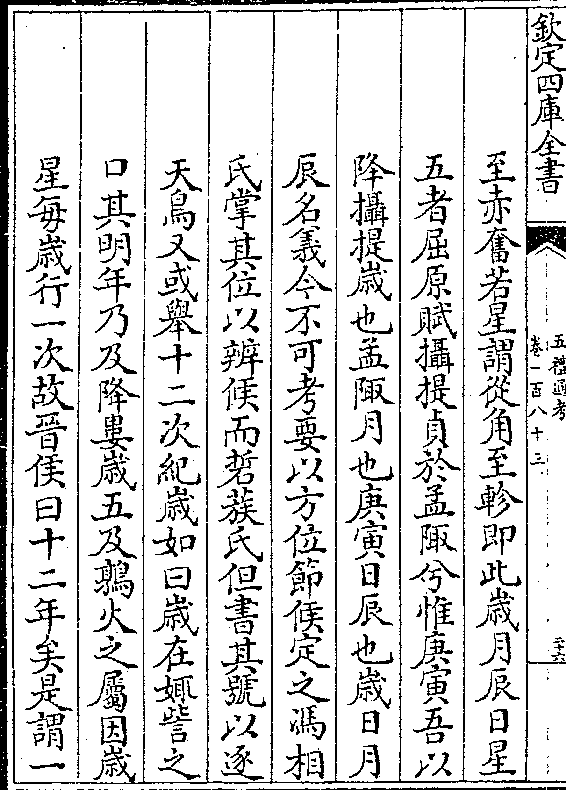 欽定四庫全書
五禮通考
卷一百八十三
二十六
至赤奮若星謂從角至軫即此歲月辰日星
五者屈原賦攝提貞於孟陬兮惟庚寅吾以
降攝提歲也孟陬月也庚寅日辰也歲日月
辰名義今不可考要以方位節候定之馮相
氏掌其位以辨候而硩蔟氏但書其號以逐
天鳥又或舉十二次紀歲如曰歲在娵訾之
口其明年乃及降婁歲五及鶉火之屬因歲
星每歲行一次故晉侯曰十二年矣是謂一